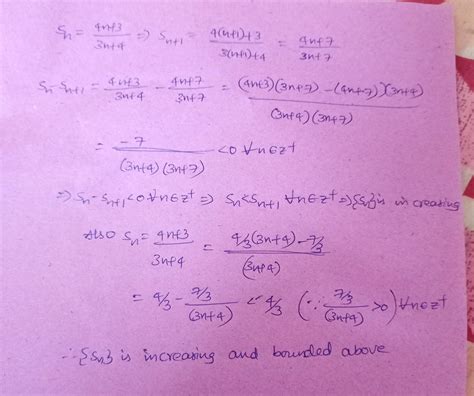 Sn = (4n+3)/(3n+4) ⇒ Sn+1 = (4(n+1)+3)/(3(n+1)+4) = (4n+7)/(3n+7)
Sn - Sn+1 = (4n+3)/(3n+4) - (4n+7)/(3n+7) = ((4n+3)(3n+7) - (4n+7)(3n+4))/((3n+4)(3n+7))
= -7/((3n+4)(3n+7)) <0 ∀n∈z⁺
⇒ Sn - Sn+1 <0 ∀n∈z⁺ ⇒ Sn < Sn+1 ∀n∈z⁺ ⇒ {Sn} is increasing
Also Sn = (4n+3)/(3n+4) = (4/3(3n+4) - 7/3)/(3n+4)
= 4/3 - (7/3)/(3n+4) < 4/3 (∵ (7/3)/(3n+4) >0) ∀n∈z⁺
∴ {Sn} is increasing and bounded above